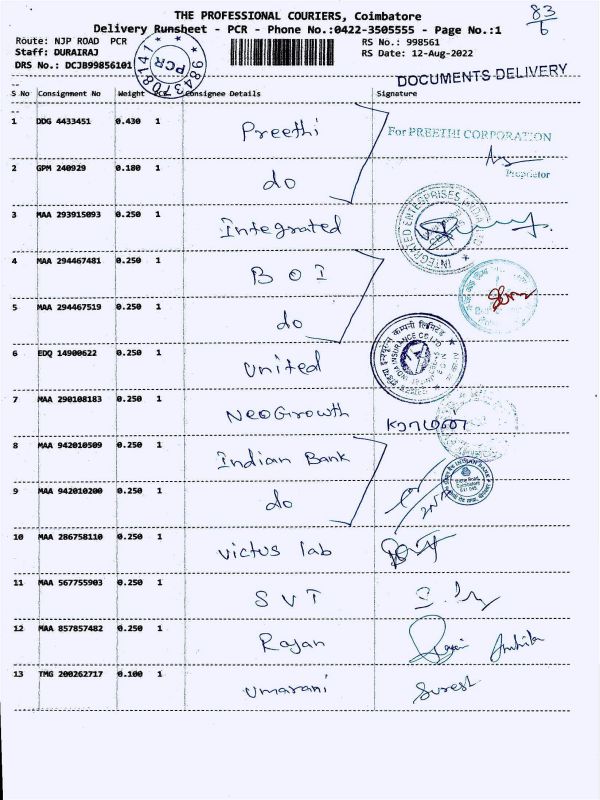 THE PROFESSIONAL COURIERS, Coimbatore
83/6
Delivery Runsheet - PCR - Phone No.:0422-3505555 - Page No.:1
Route: NJP ROAD PCR
RS No.: 998561
Staff: DURAIRAJ
RS Date: 12-Aug-2022
DRS No.: DCJB99856101
PCR
9843708141
DOCUMENTS DELIVERY
S No Consignment No Weight PCS Consignee Details Signature
1 DDG 4433451 0.430 1 Preethi
For PREETHI CORPORATION
Proprietor
2 GPM 240929 0.180 1 do
3 MAA 293915093 0.250 1 Integrated
4 MAA 294467481 0.250 1 BOI
5 MAA 294467519 0.250 1 do
6 EDQ 14900622 0.250 1 United
7 MAA 290108183 0.250 1 NeoGrowth
8 MAA 942010509 0.250 1 Indian Bank
9 MAA 942010200 0.250 1 do
10 MAA 286758110 0.250 1 Victus lab
11 MAA 567755903 0.250 1 SVT
12 MAA 857857482 0.250 1 Rajan
13 TMG 200262717 0.100 1 Umarani Suresh